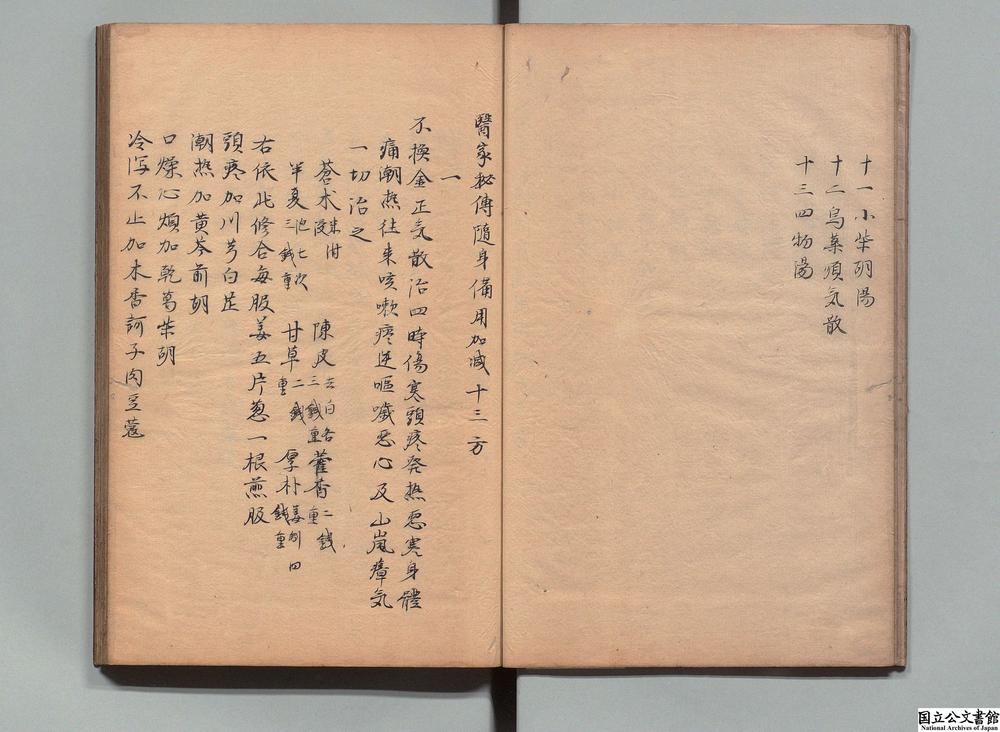 十一小柴胡湯
十二烏薬順気散
十三四物湯
醫家秘傳隨身備用加减十三方
一
不換金正気散治四時傷寒頭疼発热悪寒身體
痛潮热往来咳嗽痰逆嘔噦悪心及山嵐瘴気
一切治之
蒼术米泔浸 陳皮去白各三銭重 藿香二銭重
半夏泡七次三銭重 甘草二銭重 厚朴姜制四銭重
右依此修合毎服姜五片葱一根煎服
頭疼加川芎白芷
潮热加黄芩前胡
口燥心煩加乾葛柴胡
冷泻不止加木香訶子肉豆蔻
国立公文書館
National Archives of Japan